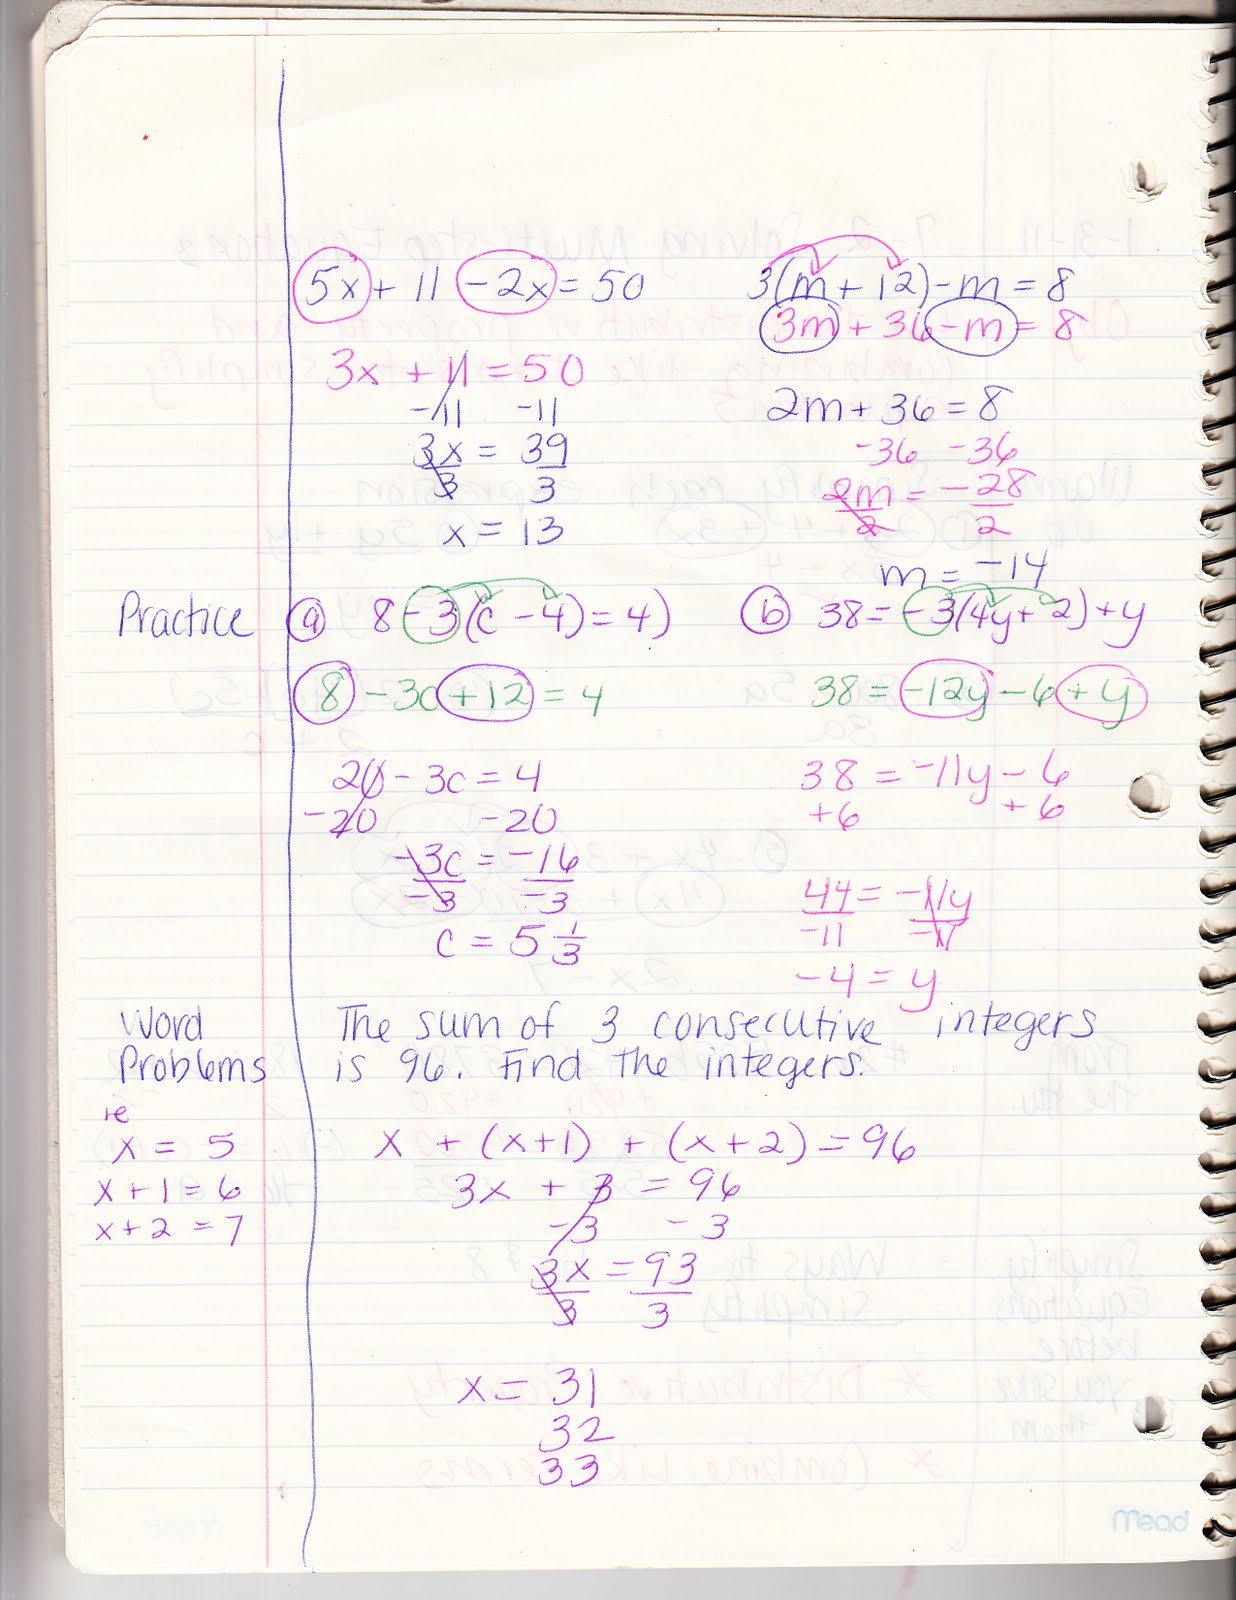 5x + 11 - 2x = 50
3x + 11 = 50
-11 -11
3x = 39
3 3
x = 13
3(m + 12) - m = 8
3m + 36 - m = 8
2m + 36 = 8
-36 -36
2m = -28
2 2
m = -14
Practice
a 8 - 3(c - 4) = 4)
8 - 3c + 12 = 4
20 - 3c = 4
-20 -20
-3c = -16
-3 -3
c = 5 1/3
b 38 = -3(4y + 2) + y
38 = -12y - 6 + y
38 = -11y - 6
+6 +6
44 = -11y
-11 -11
-4 = y
Word
Problems
ie
x = 5
x + 1 = 6
x + 2 = 7
The sum of 3 consecutive integers
is 96. Find the integers.
x + (x+1) + (x+2) = 96
3x + 3 = 96
-3 -3
3x = 93
3 3
x = 31
32
33
Mead